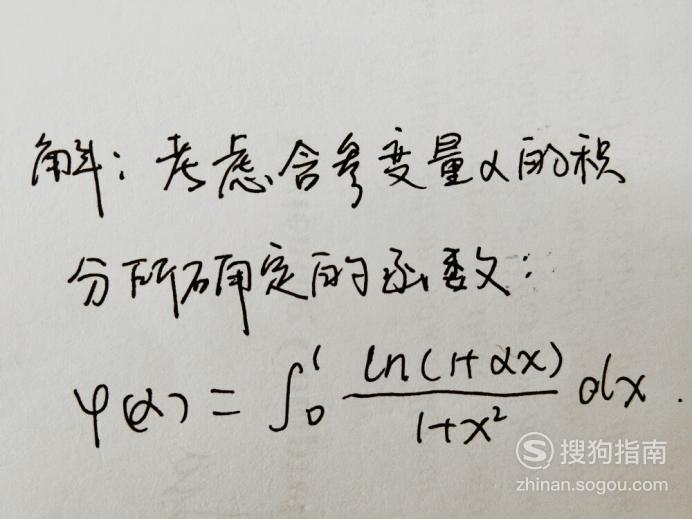 解：考虑含参变量α的积
分所确定的函数：
φ(α) = ∫₀¹ ln(1+αx)/(1+x²) dx.
S 搜狗指南
zhinan.sogou.com